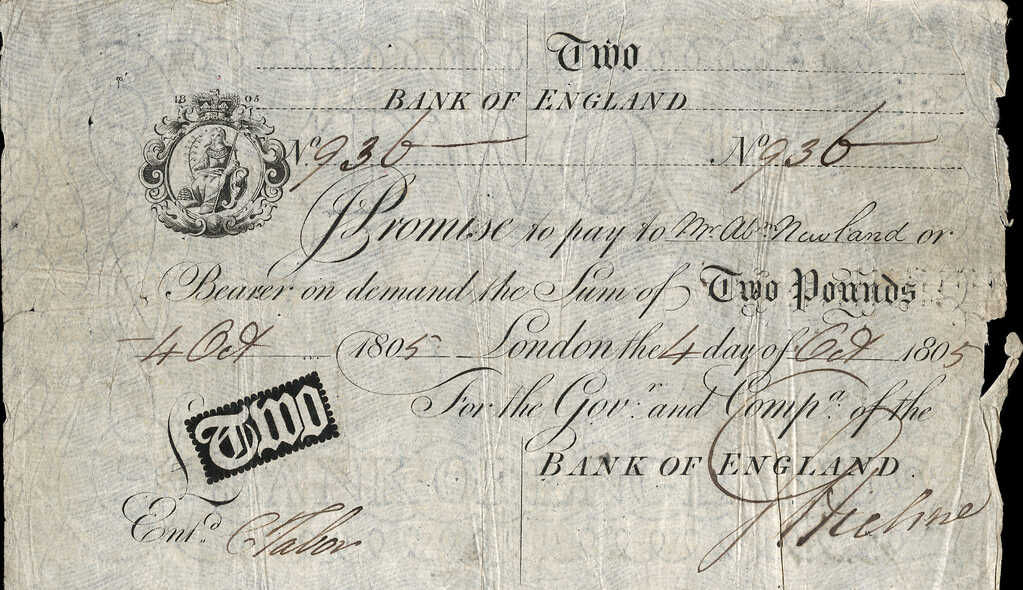 Two
BANK OF ENGLAND
18 05
Nº 936 Nº 936
I Promise to pay to Mr. Abm. Newland or
Bearer on demand the Sum of Two Pounds
4 Oct 1805 London the 4 day of Oct 1805
For the Govr. and Compa. of the
£ Two
BANK OF ENGLAND
Entd. C Tabor